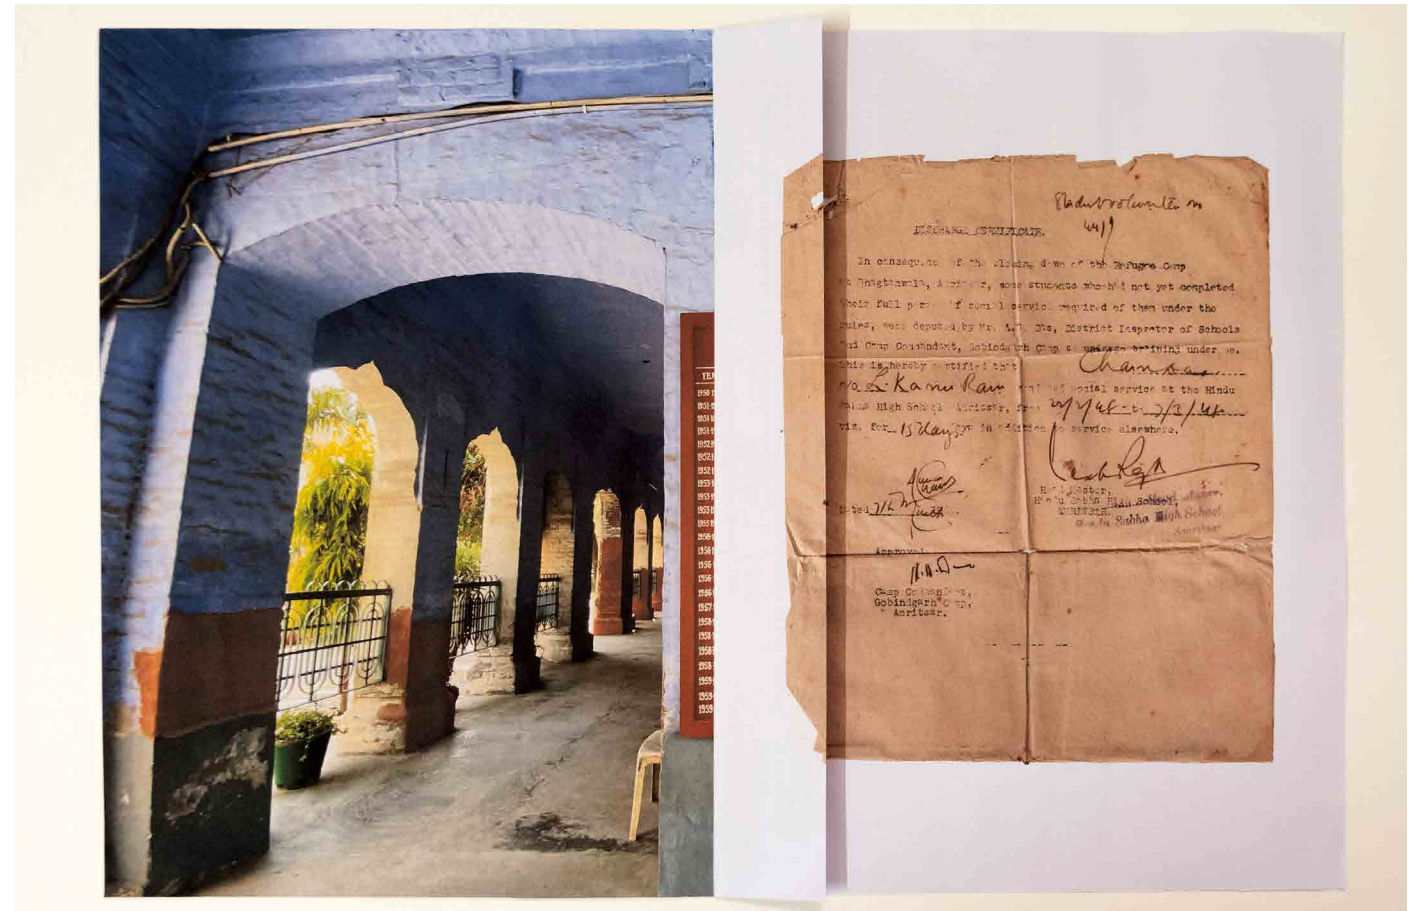 YEA
1950-
1951-
1951-
1951-
1952-
1952-
1952-
1953-
1953-
1953-
1955-
1956-
1956-
1956-
1956
1956-
1957-
1958-
1958-
1958-
1958-
1959-
1959-
1959-
DISCHARGE CERTIFICATE.
In consequence of the closing down of the Refugee Camp
at Bhagtanwala, Amritsar, some students who had not yet completed
their full period of social service required of them under the
rules, were deputed by Mr. A. Das, District Inspector of Schools
and Camp Commandant, Gobindgarh Camp to training under me.
This is hereby certified that
S/O L. Kanu Ram social service at the Hindu
Sabha High School Amritsar, from 22/2/48 to 7/3/48
viz. for 15 days in addition to service elsewhere.
Head Master,
Hindu Sabha High School
AMRITSAR
Head Master,
Hindu Sabha High School,
Amritsar
Dated
Approved.
Camp Commandant,
Gobindgarh Camp,
Amritsar.